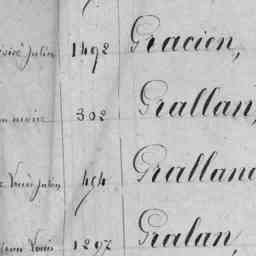 Julien 1492 Gracien,
302 Grallan,
Louis Julien 494 Gralland
Louis 1297 Gralan,